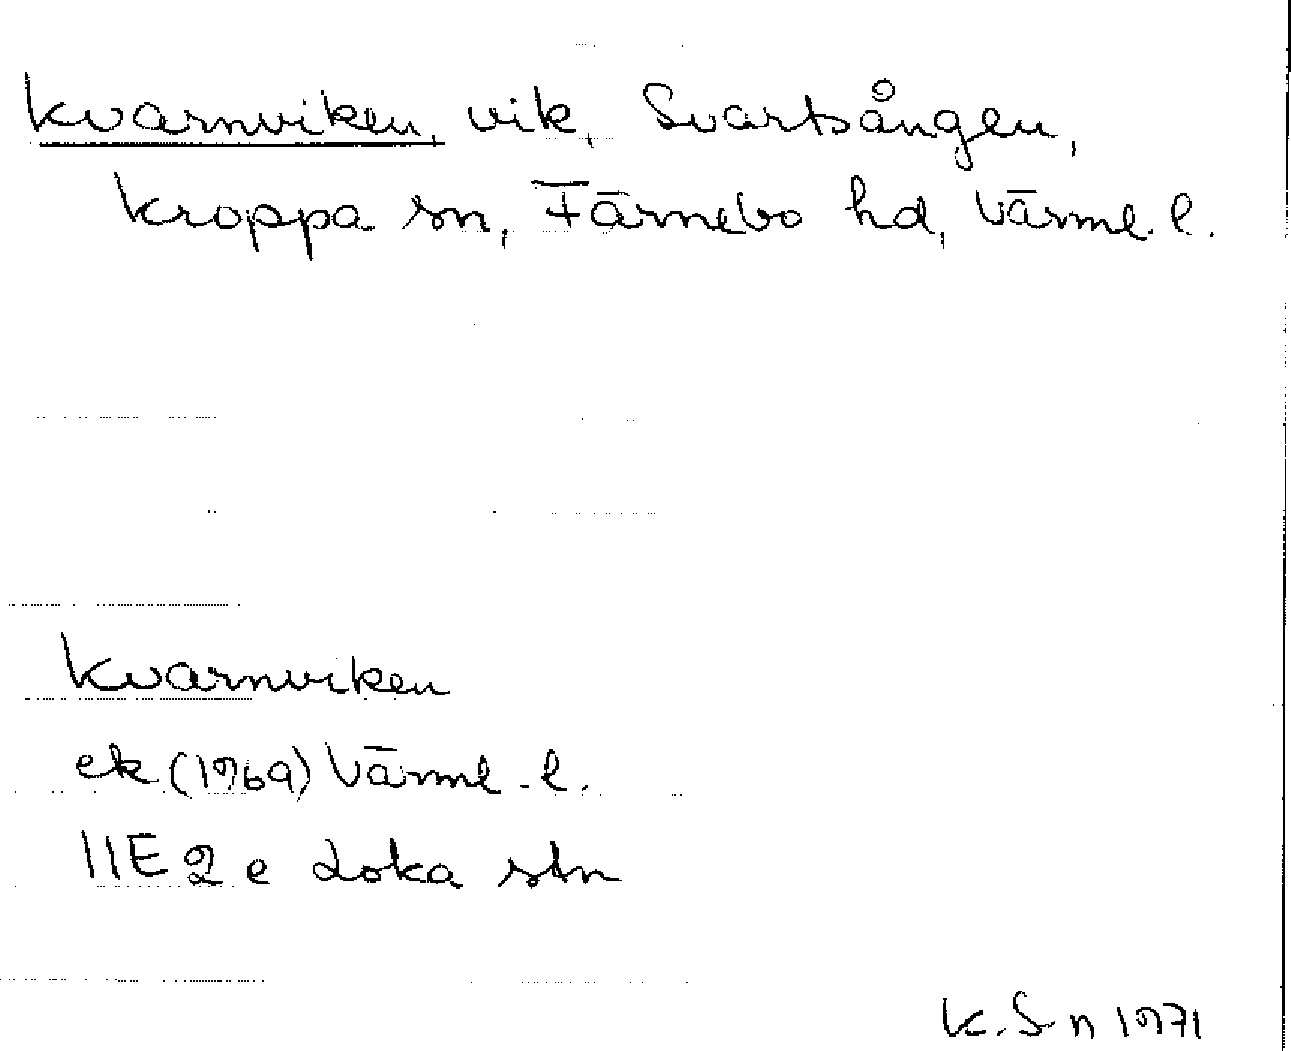 Kvarnviken, vik, Svartsången,
Kroppa sn, Färnebo hd, Värml. l.
Kvarnviken
ek (1969) Värml. l.
11E 2 e Loka stn
K. S-n 1971